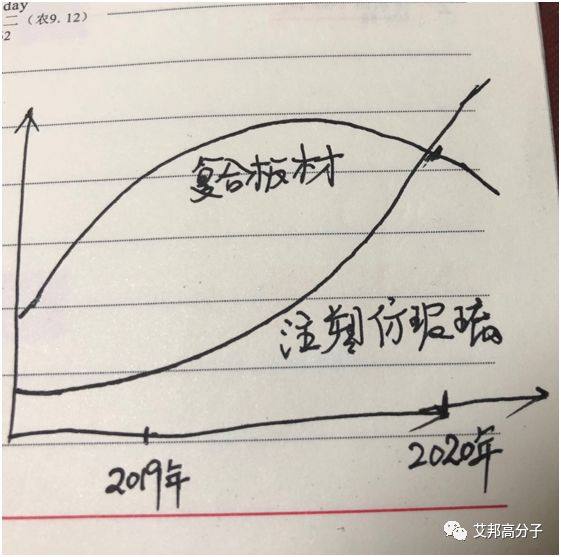 day
二（农9. 12）
复合板材
注塑仿玻璃
2019年
2020年
艾邦高分子